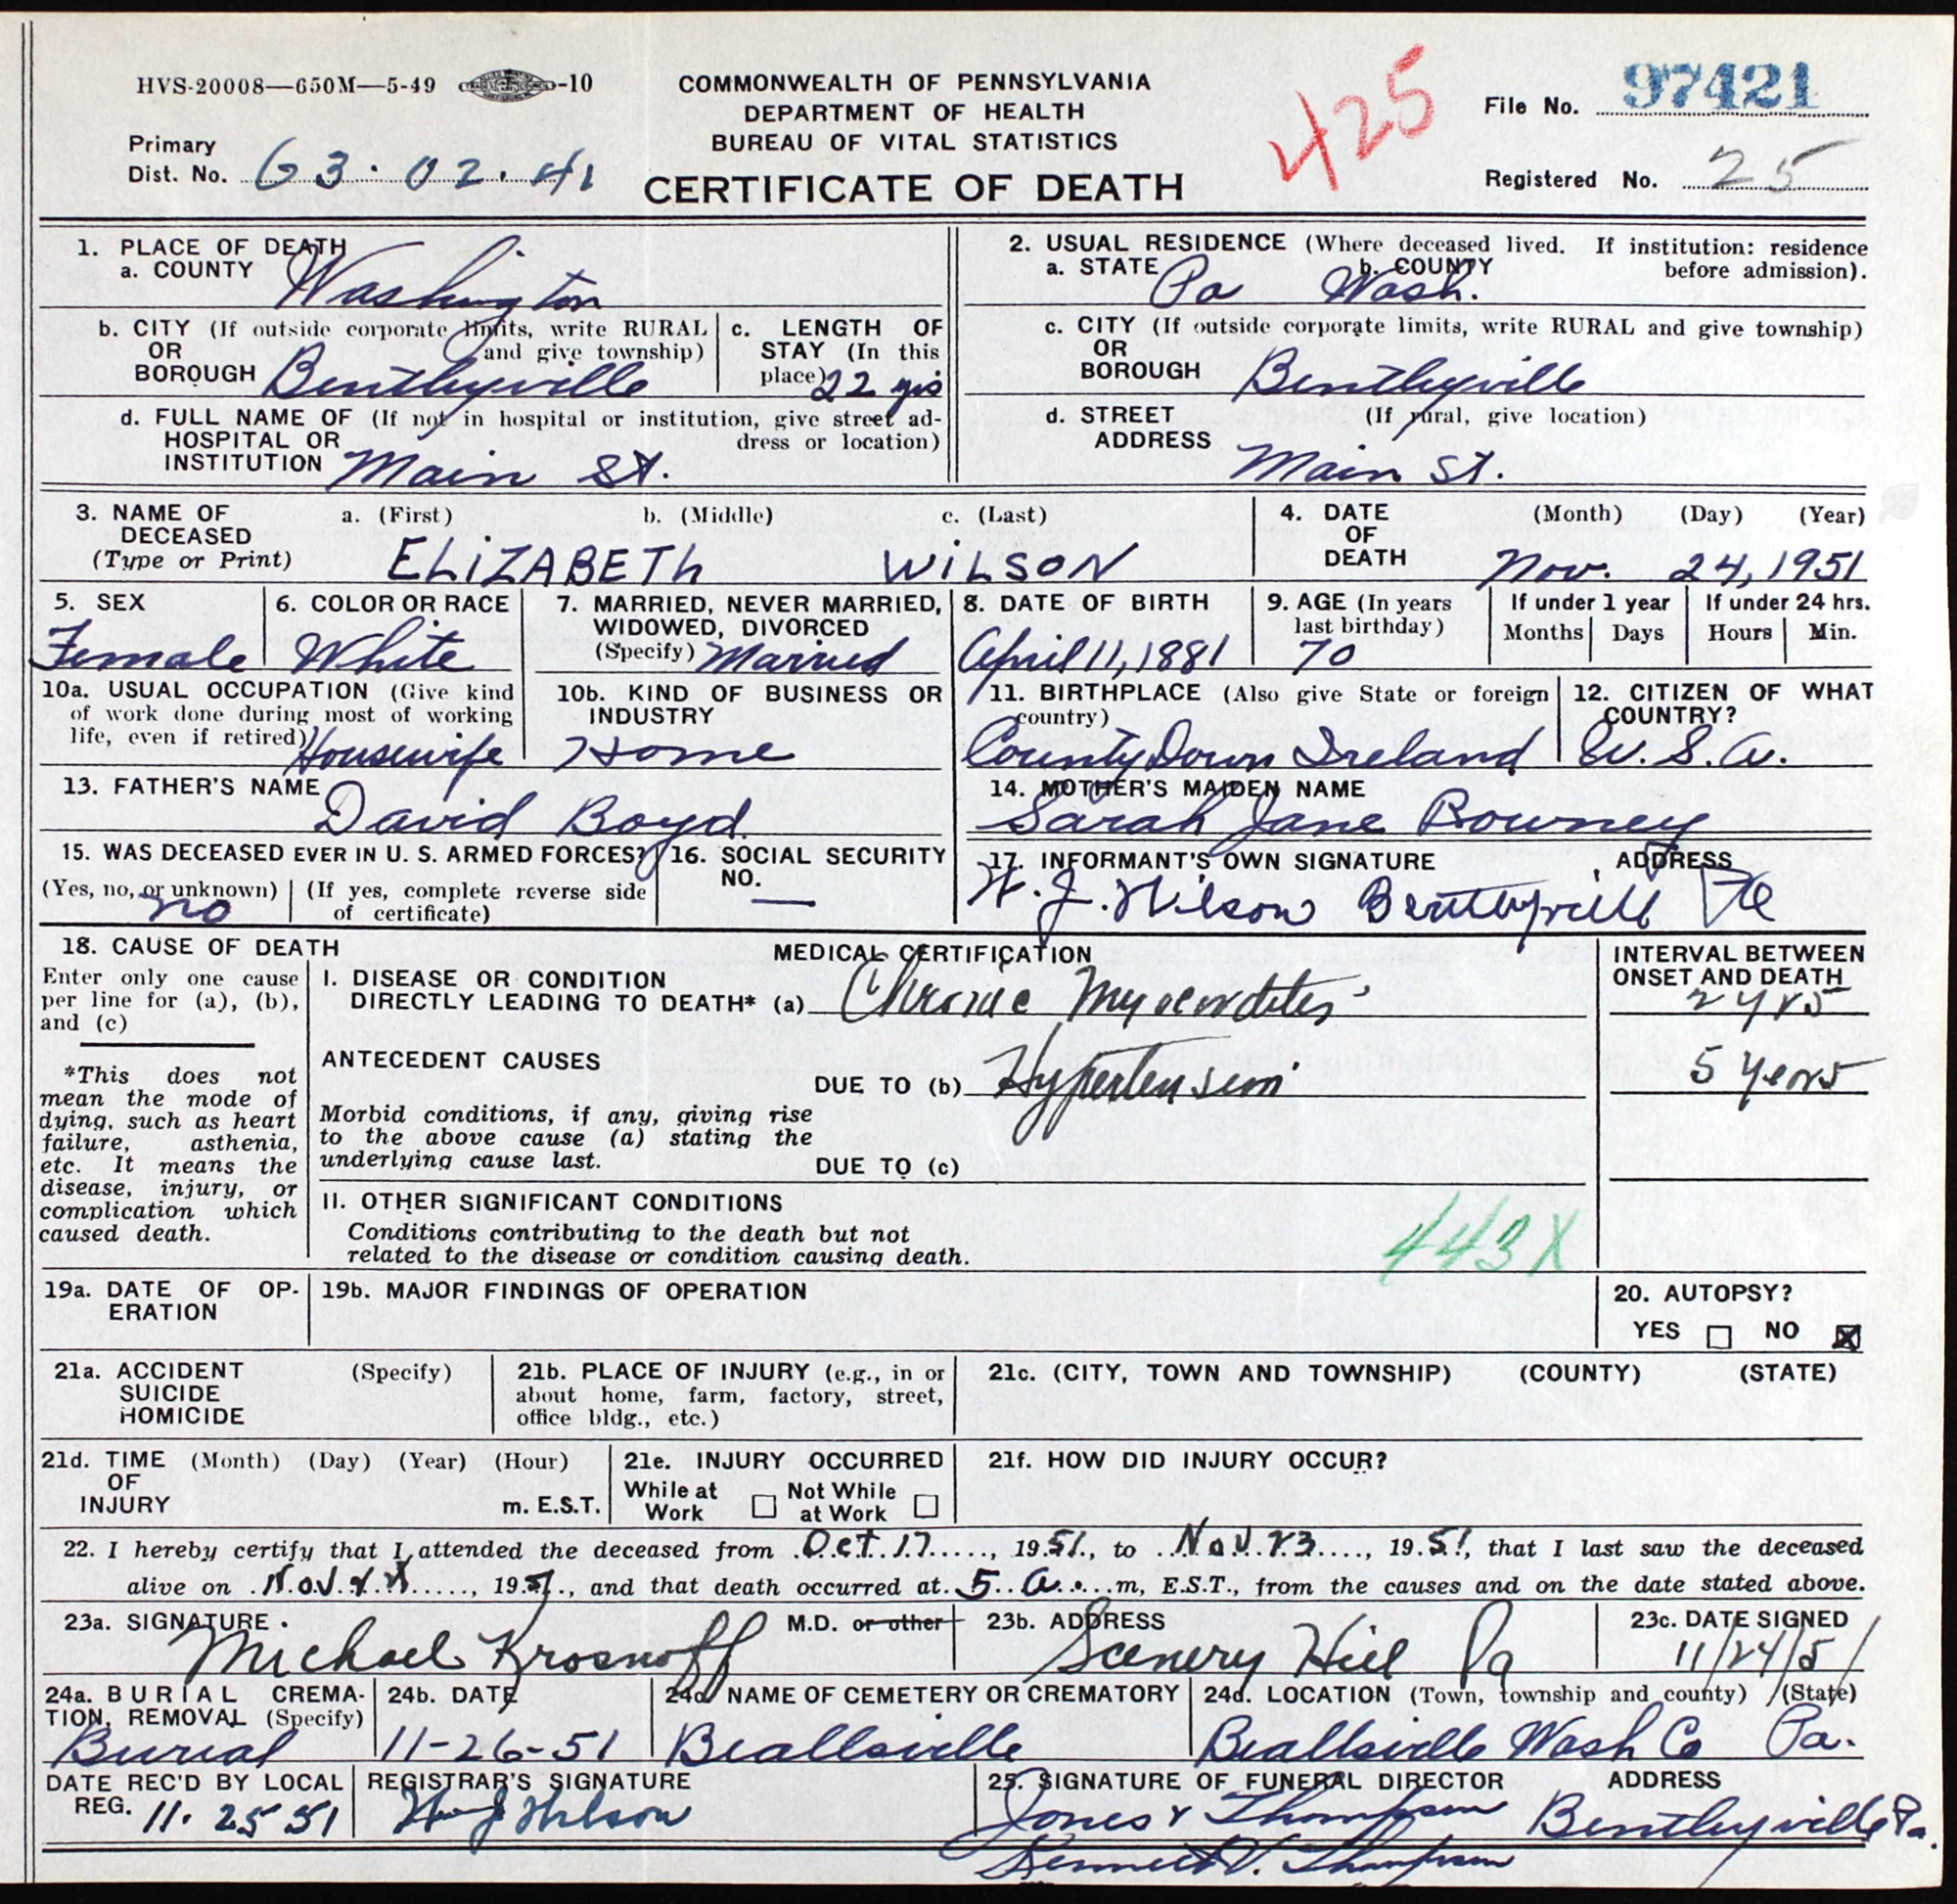 HVS-20008—650M—5-49 -10
COMMONWEALTH OF PENNSYLVANIA
DEPARTMENT OF HEALTH
BUREAU OF VITAL STATISTICS
CERTIFICATE OF DEATH
425
File No. 97421
Primary
Dist. No. 63.02.41
Registered No. 25
1. PLACE OF DEATH
a. COUNTY Washington
2. USUAL RESIDENCE (Where deceased lived. If institution: residence before admission).
a. STATE Pa b. COUNTY Wash.
b. CITY (If outside corporate limits, write RURAL
OR and give township)
BOROUGH Bentleyville
c. LENGTH OF
STAY (In this
place) 22 yrs
c. CITY (If outside corporate limits, write RURAL and give township)
OR
BOROUGH Bentleyville
d. FULL NAME OF (If not in hospital or institution, give street ad-
HOSPITAL OR dress or location)
INSTITUTION Main St.
d. STREET (If rural, give location)
ADDRESS Main St.
3. NAME OF a. (First) b. (Middle) c. (Last)
DECEASED
(Type or Print) ELIZABETH WILSON
4. DATE (Month) (Day) (Year)
OF
DEATH Nov. 24, 1951
5. SEX
Female
6. COLOR OR RACE
White
7. MARRIED, NEVER MARRIED,
WIDOWED, DIVORCED
(Specify) Married
8. DATE OF BIRTH
April 11, 1881
9. AGE (In years
last birthday)
70
If under 1 year
Months Days
If under 24 hrs.
Hours Min.
10a. USUAL OCCUPATION (Give kind
of work done during most of working
life, even if retired) Housewife
10b. KIND OF BUSINESS OR
INDUSTRY
Home
11. BIRTHPLACE (Also give State or foreign
country)
County Down Ireland
12. CITIZEN OF WHAT
COUNTRY?
U. S. A.
13. FATHER'S NAME
David Boyd
14. MOTHER'S MAIDEN NAME
Sarah Jane Rowney
15. WAS DECEASED EVER IN U. S. ARMED FORCES?
(Yes, no, or unknown) (If yes, complete reverse side
no of certificate)
16. SOCIAL SECURITY
NO.
—
17. INFORMANT'S OWN SIGNATURE ADDRESS
W. J. Wilson Bentleyville Pa
18. CAUSE OF DEATH
Enter only one cause
per line for (a), (b),
and (c)
*This does not
mean the mode of
dying, such as heart
failure, asthenia,
etc. It means the
disease, injury, or
complication which
caused death.
MEDICAL CERTIFICATION
I. DISEASE OR CONDITION
DIRECTLY LEADING TO DEATH* (a) Chronic Myocarditis
ANTECEDENT CAUSES
DUE TO (b) Hypertension
Morbid conditions, if any, giving rise
to the above cause (a) stating the
underlying cause last.
DUE TO (c)
II. OTHER SIGNIFICANT CONDITIONS
Conditions contributing to the death but not
related to the disease or condition causing death.
443X
INTERVAL BETWEEN
ONSET AND DEATH
2 yrs
5 years
19a. DATE OF OP-
ERATION
19b. MAJOR FINDINGS OF OPERATION
20. AUTOPSY?
YES NO X
21a. ACCIDENT (Specify)
SUICIDE
HOMICIDE
21b. PLACE OF INJURY (e.g., in or
about home, farm, factory, street,
office bldg., etc.)
21c. (CITY, TOWN AND TOWNSHIP) (COUNTY) (STATE)
21d. TIME (Month) (Day) (Year) (Hour)
OF
INJURY m. E.S.T.
21e. INJURY OCCURRED
While at Work Not While at Work
21f. HOW DID INJURY OCCUR?
22. I hereby certify that I attended the deceased from Oct 17, 1951, to Nov. 23, 1951, that I last saw the deceased
alive on Nov., 1951, and that death occurred at 5 a.m, E.S.T., from the causes and on the date stated above.
23a. SIGNATURE M.D. or other
Michael Krosnoff
23b. ADDRESS
Scenery Hill Pa
23c. DATE SIGNED
11/24/51
24a. BURIAL CREMA-
TION, REMOVAL (Specify)
Burial
24b. DATE
11-26-51
24c. NAME OF CEMETERY OR CREMATORY
Beallsville
24d. LOCATION (Town, township and county) (State)
Beallsville Wash Co Pa.
DATE REC'D BY LOCAL
REG. 11.25 51
REGISTRAR'S SIGNATURE
W J Wilson
25. SIGNATURE OF FUNERAL DIRECTOR ADDRESS
Jones & Thompson Bentleyville Pa.
V. Thompson